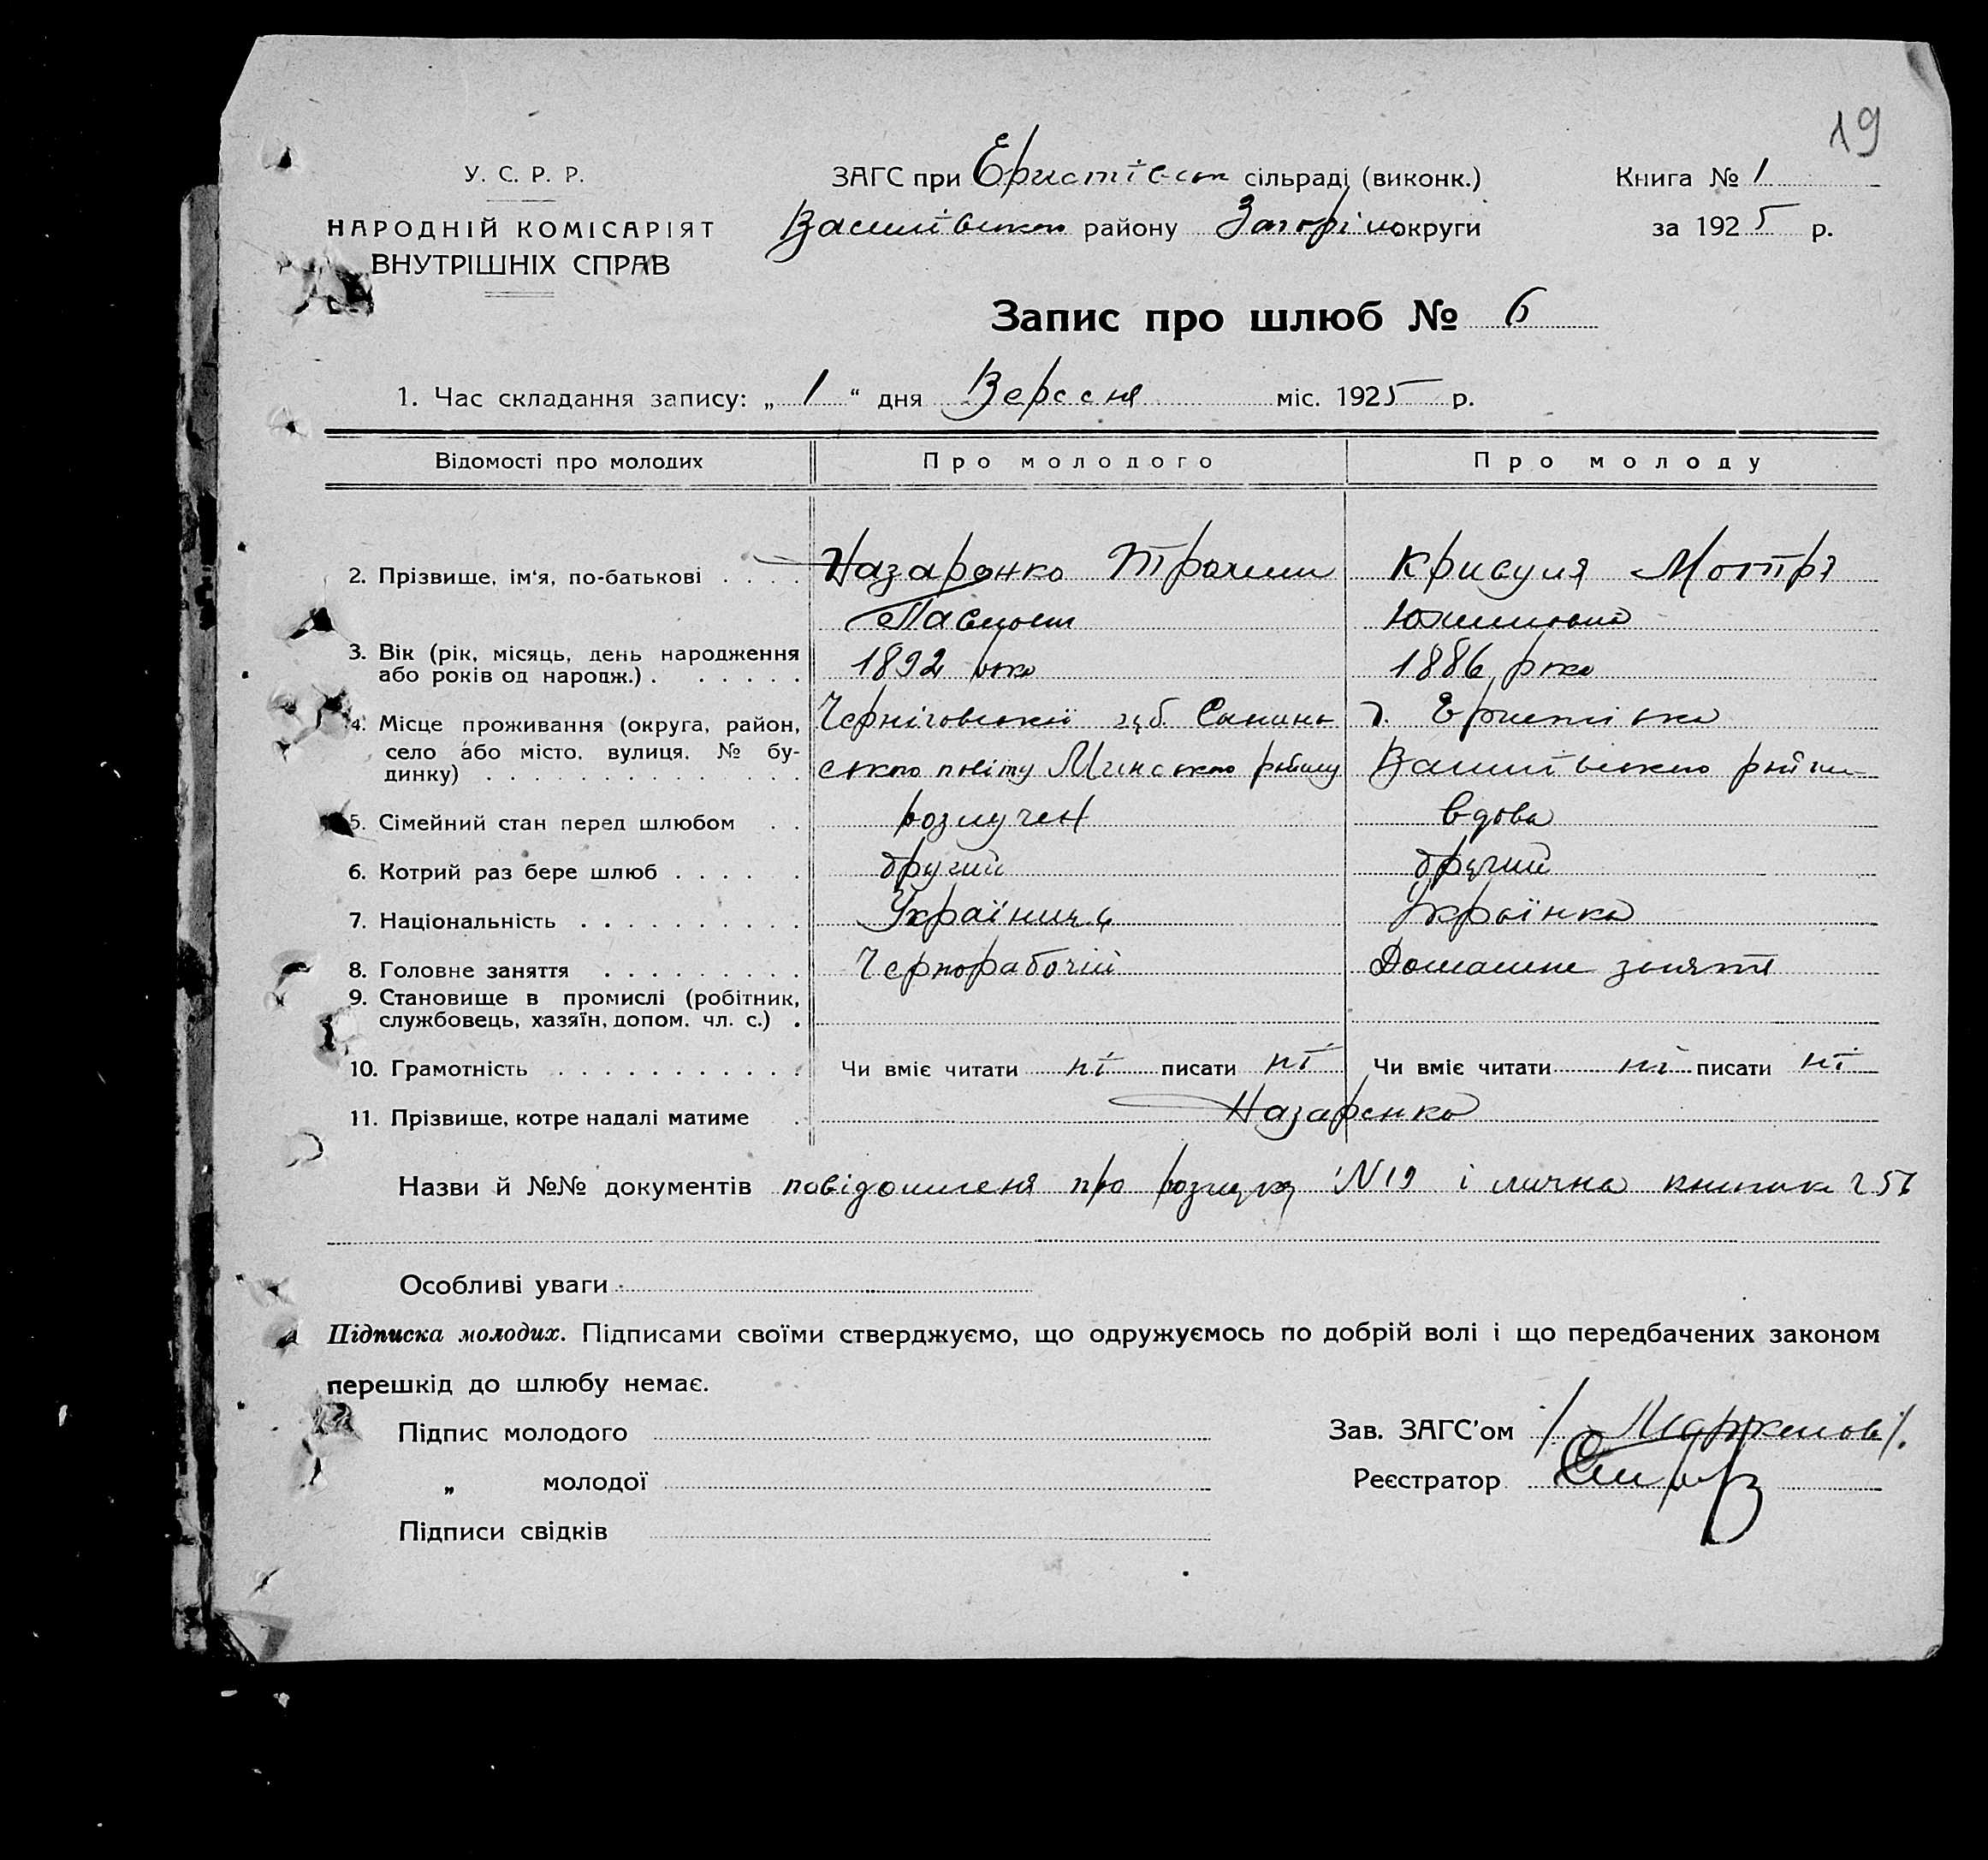 19
У. С. Р. Р.
НАРОДНІЙ КОМІСАРІЯТ
ВНУТРІШНІХ СПРАВ
ЗАГС при Еристівськ сільраді (виконк.)
району округи
Книга № 1
за 1925 р.
Запис про шлюб № 6
1. Час складання запису: „ 1 “ дня Версеня міс. 1925 р.
Відомості про молодих Про молодого Про молоду
2. Прізвище, ім'я, по-батькові . . . . Назаронко Крисуля Мотрі
3. Вік (рік, місяць, день народження
або років од народж.) . . . . . . 1892 року 1886 рока
4. Місце проживання (округа, район, Черніговської губ.
село або місто, вулиця, № бу-
динку) . . . . . . . . . . . . ського повіту
5. Сімейний стан перед шлюбом . . розлучен вдова
6. Котрий раз бере шлюб . . . . . другий другий
7. Національність . . . . . . . . . . Українець Українка
8. Головне заняття . . . . . . . . . Чернорабочій Домашне заняття
9. Становище в промислі (робітник,
службовець, хазяїн, допом. чл. с.) .
10. Грамотність . . . . . . . . . . . Чи вміє читати ні писати ні Чи вміє читати ні писати ні
11. Прізвище, котре надалі матиме . Назаренко
Назви й №№ документів повідомленя про N 19 і лична книжка
Особливі уваги
Підписка молодих. Підписами своїми стверджуємо, що одружуємось по добрій волі і що передбачених законом
перешкід до шлюбу немає.
Підпис молодого
„ молодої
Підписи свідків
Зав. ЗАГС'ом
Реєстратор